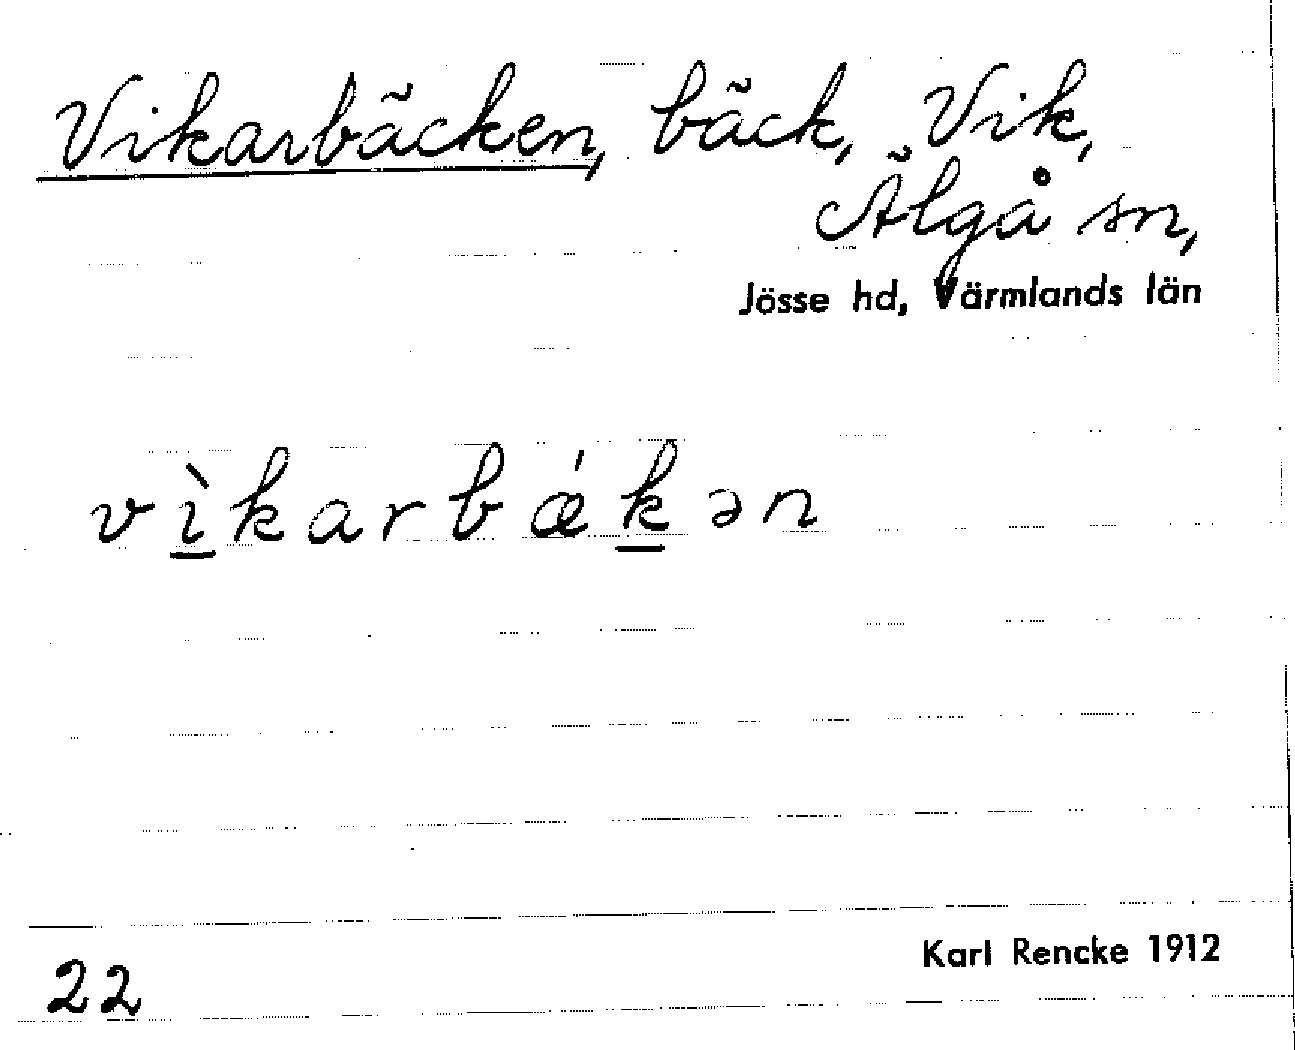 Vikarbäcken, bäck, Vik,
Älgå sn,
Jösse hd, Värmlands län
vìkarbǽkən
22
Karl Rencke 1912